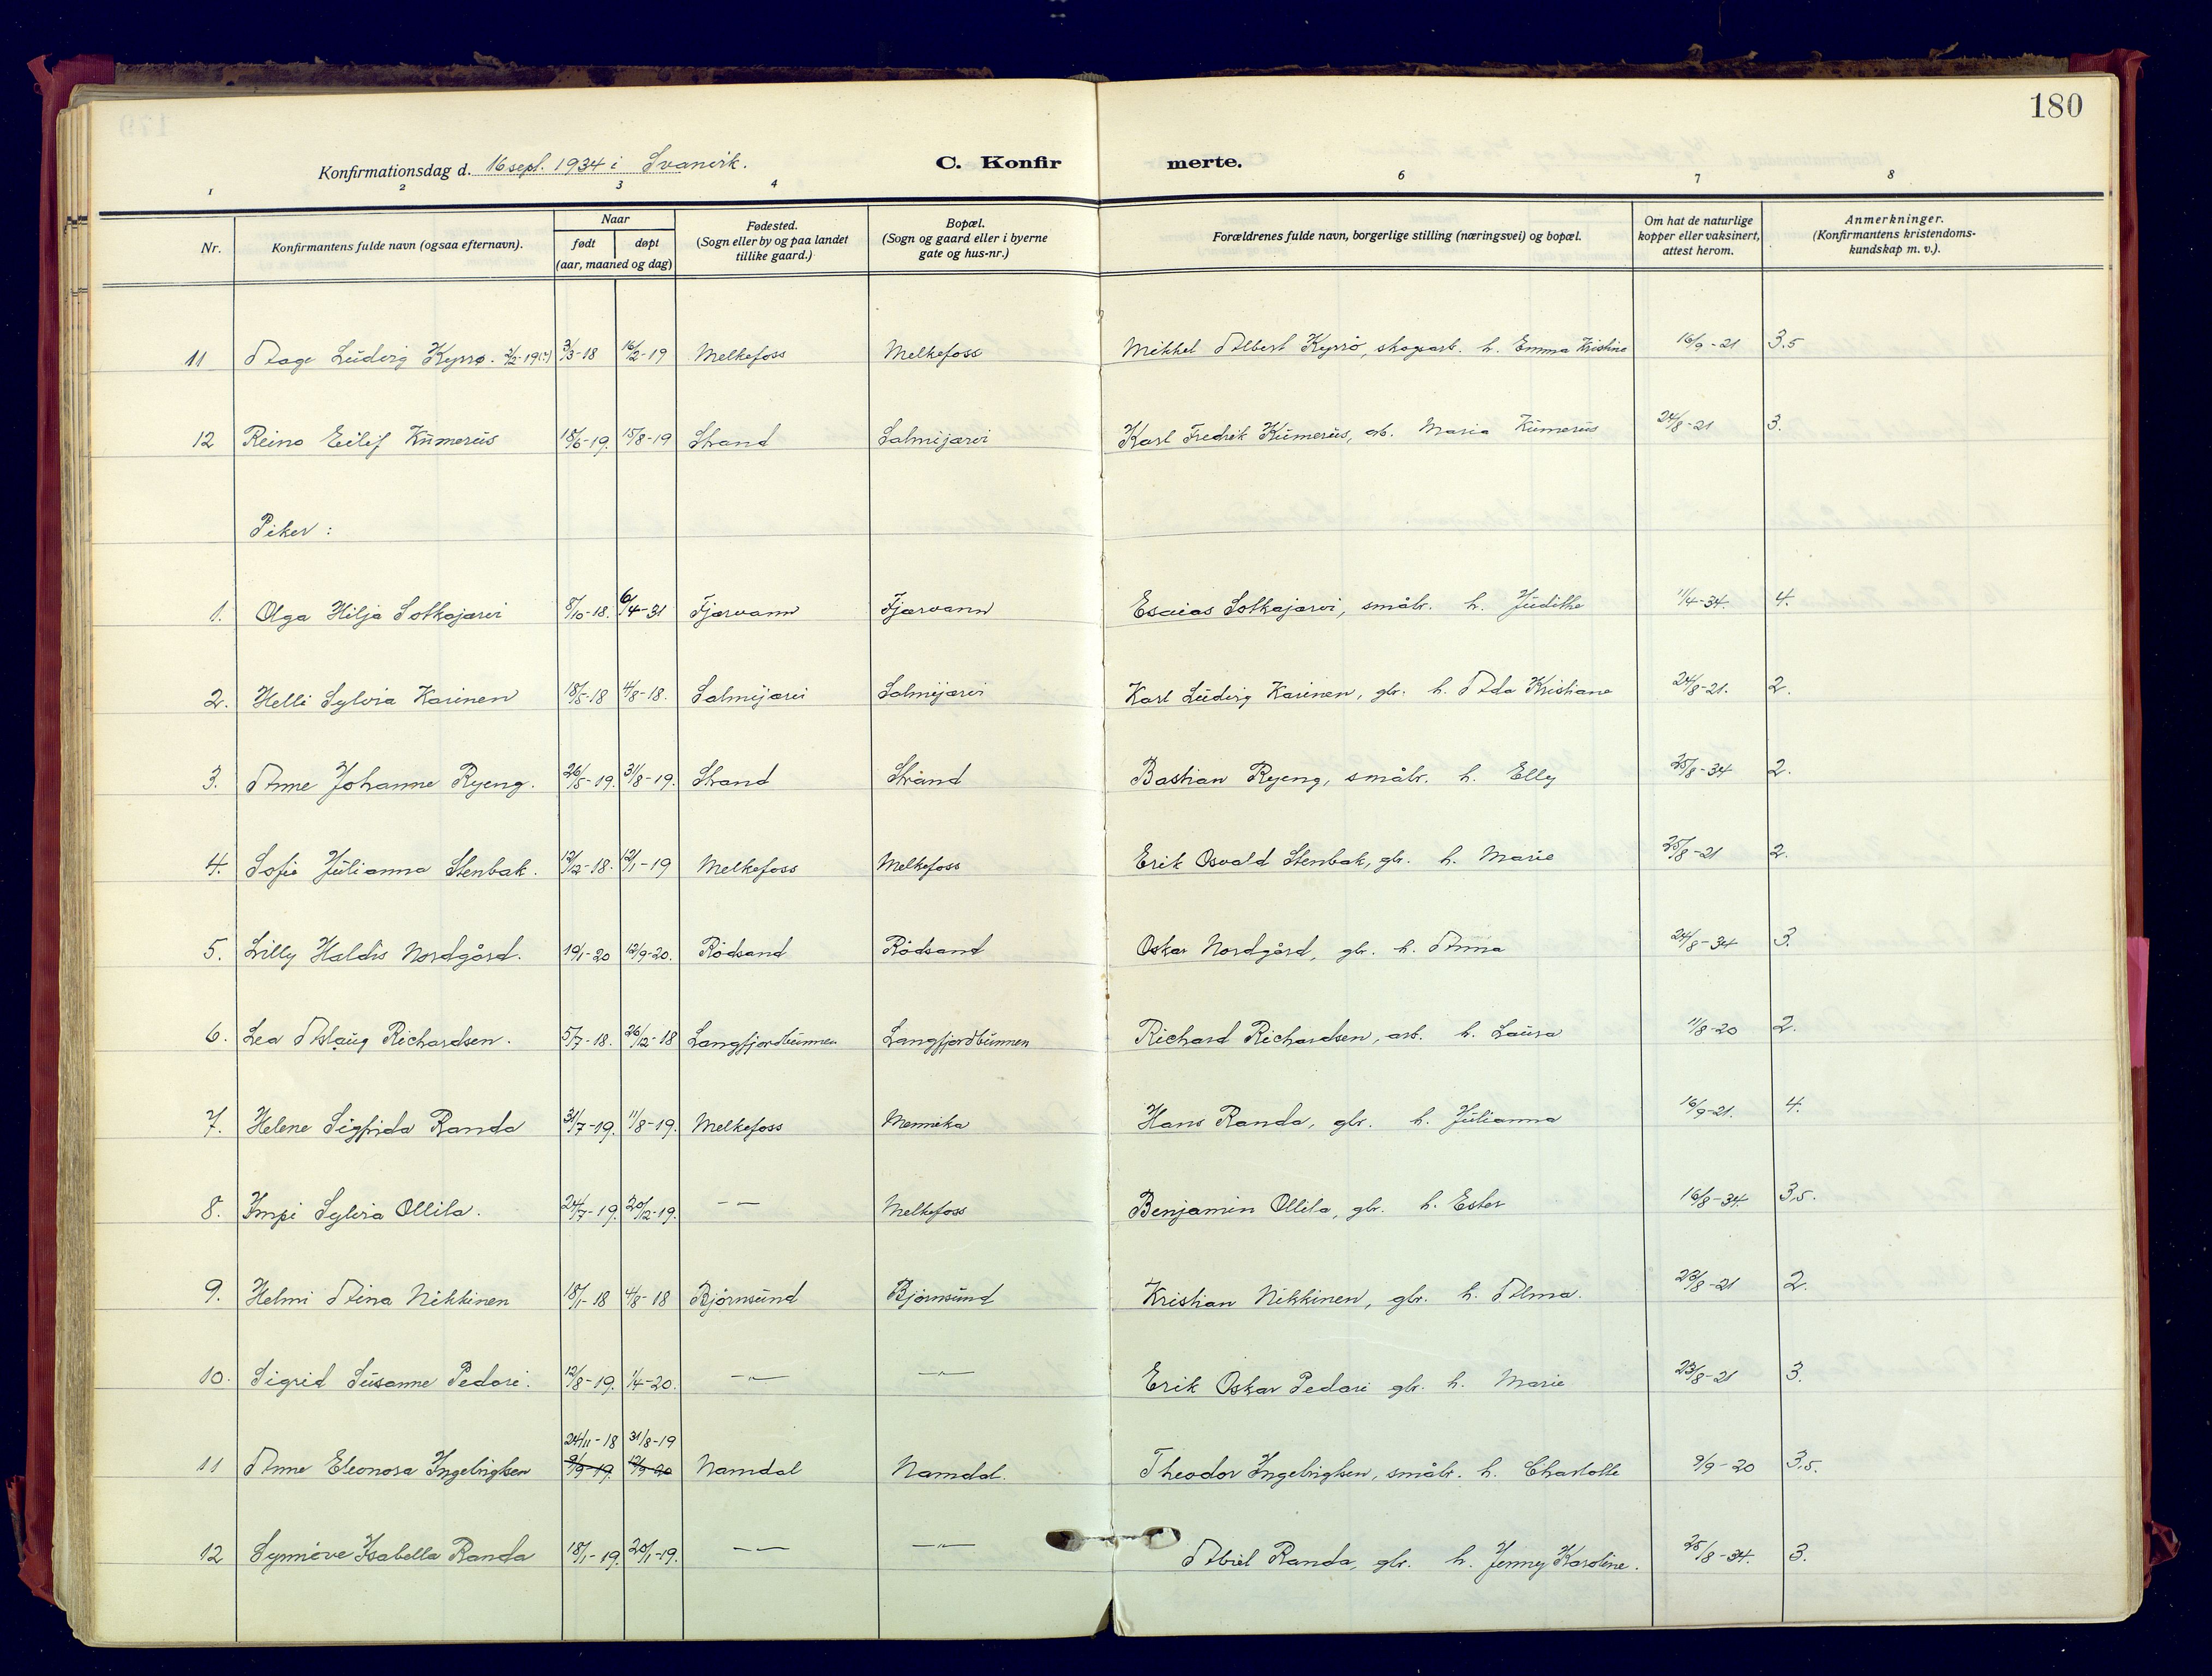 180
Konfirmationsdag d. 16 sept. 1934 i Svanvik. C. Konfirmerte.
1 2 3 4 6 7 8
Nr. Konfirmantens fulde navn (ogsaa efternavn). Naar født døpt (aar, maaned og dag) Fødested. (Sogn eller by og paa landet tillike gaard.) Bopæl. (Sogn og gaard eller i byerne gate og hus-nr.) Forældrenes fulde navn, borgerlige stilling (næringsvei) og bopæl. Om hat de naturlige kopper eller vaksinert, attest herom. Anmerkninger. (Konfirmantens kristendoms-kundskap m. v.).
11 Aage Ludvig Kyrrø. 3/3-18 16/2-19 Melkefoss Melkefoss Mikkel Albert Kyrrö, skogsarb. h. Emma Kristine 16/9-21 3.5
12 Reino Eilif Kumerus 18/6-19. 15/8-19 Strand Salmijarvi Karl Fredrik Kumerus, arb. Maria Kumerus 24/8-21 3.
Piker:
1. Olga Hilja Sotkajarvi 8/10-18. 6/4-31 Fjærvann Fjærvann Esaias Sotkajarvi, småbr. h. Judithe 11/4-34. 4.
2. Helli Sylvia Karinen 18/5-18 4/8-18. Salmijarvi Salmijarvi Karl Ludvig Karinen, gbr. h. Ada Kristiane 24/8-21. 2.
3. Anne Johanne Ryeng. 26/5-19. 31/8-19. Strand Strand Bastian Ryeng, småbr. h. Elly 25/8-34 2.
4. Sofie Julianna Stenbak. 12/12-18. 12/1-19 Melkefoss Melkefoss Erik Osvald Stenbak, gbr. h. Marie 25/8-21 2.
5. Lilly Haldis Nordgård. 19/1-20 12/9-20. Rödsand Rödsand Oskar Nordgård, gbr. h. Anna 24/8-34 3.
6. Lea Aslaug Richardsen. 5/7-18. 26/12-18 Langfjordbunnen Langfjordbunnen Richard Richardsen, arb. h. Laura 11/8-20 2.
7. Helene Sigfrida Randa 31/7-19. 11/8-19. Melkefoss Mennika Hans Randa, gbr. h. Julianna 16/9-21. 4.
8. Impi Sylvia Ollila. 24/7-19. 20/12-19. — — Melkefoss Benjamin Ollila, gbr. h. Ester 16/8-34. 3,5.
9. Helmi Aina Nikkinen 18/1-18 4/8-18 Björnsund Björnsund Kristian Nikkinen, gbr. h. Alma. 23/8-21 2.
10. Sigrid Susanne Pedari. 12/8-19. 1/4-20. —"— —"— Erik Oskar Pedari gbr. h. Marie 23/8-21 3.
24/11-18 31/8-19
11 Anne Eleonora Ingebrigtsen 9/9-19. 12/9-20 Namdal Namdal. Theodor Ingebrigtsen, småbr. h. Charlotte 9/9-20 3,5.
12 Synnöve Isabella Randa 18/1-19. 20/1-19. — — —"— Abiel Randa, gbr. h. Jenny Karoline. 25/8-34. 3.